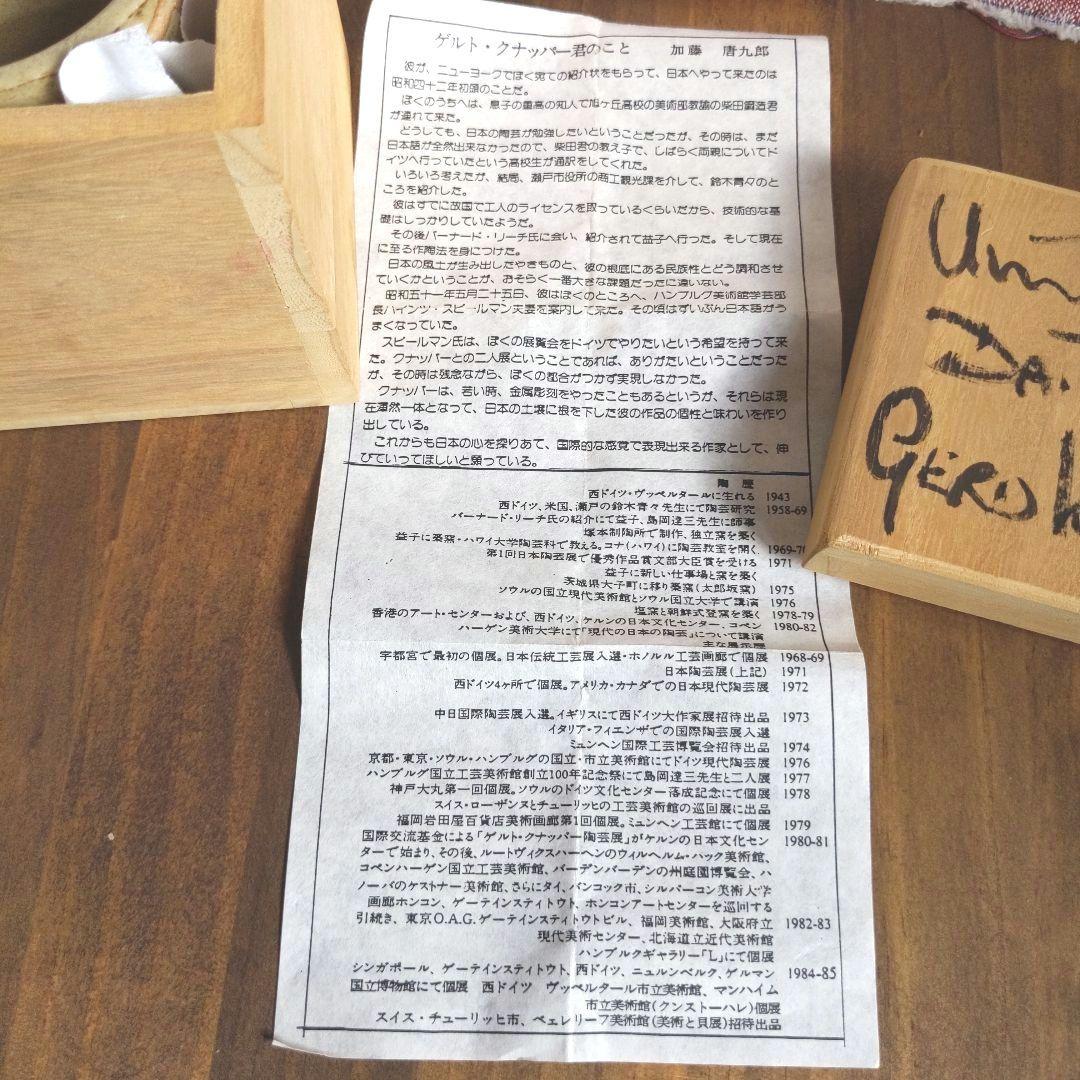 ゲルト・クナッパー君のこと　加藤　唐九郎
彼が、ニューヨークでぼく宛ての紹介状をもらって、日本へやって来たのは
昭和四十二年初頭のことだ。
ぼくのうちへは、息子の重高の知人で旭ヶ丘高校の美術部教諭の柴田鋼造君
が連れて来た。
どうしても、日本の陶芸が勉強したいということだったが、その時は、まだ
日本語が全然出来なかったので、柴田君の教え子で、しばらく両親についてド
イツへ行っていたという高校生が通訳をしてくれた。
いろいろ考えたが、結局、瀬戸市役所の商工観光課を介して、鈴木青々のと
ころを紹介した。
彼はすでに故国で工人のライセンスを取っているくらいだから、技術的な基
礎はしっかりしていたようだ。
その後バーナード・リーチ氏に会い、紹介されて益子へ行った。そして現在
に至る作陶法を身につけた。
日本の風土が生み出したやきものと、彼の根底にある民族性とどう調和させ
ていくかということが、おそらく一番大きな課題だったに違いない。
昭和五十一年五月二十五日、彼はぼくのところへ、ハンブルグ美術館学芸部
長ハインツ・スピールマン夫妻を案内して来た。その頃はずいぶん日本語がう
まくなっていた。
スピールマン氏は、ぼくの展覧会をドイツでやりたいという希望を持って来
た。クナッパーとの二人展ということであれば、ありがたいということだった
が、その時は残念ながら、ぼくの都合がつかず実現しなかった。
クナッパーは、若い時、金属彫刻をやったこともあるというが、それらは現
在渾然一体となって、日本の土壌に根を下した彼の作品の個性と味わいを作り
出している。
これからも日本の心を探りあて、国際的な感覚で表現出来る作家として、伸
びていってほしいと願っている。
陶　歴
西ドイツ・ヴッペルタールに生れる 1943
西ドイツ、米国、瀬戸の鈴木青々先生にて陶芸研究 1958-69
バーナード・リーチ氏の紹介にて益子、島岡達三先生に師事
塚本制陶所で制作、独立窯を築く
益子に築窯・ハワイ大学陶芸科で教える。コナ(ハワイ)に陶芸教室を開く 1969-70
第1回日本陶芸展で優秀作品賞文部大臣賞を受ける 1971
益子に新しい仕事場と窯を築く
茨城県大子町に移り築窯(太郎坂窯) 1975
ソウルの国立現代美術館とソウル国立大学で講演 1976
塩窯と朝鮮式登窯を築く 1978-79
香港のアート・センターおよび、西ドイツ、ケルンの日本文化センター、コペン 1980-82
ハーゲン美術大学にて「現代の日本の陶芸」について講演
主な展示展
宇都宮で最初の個展。日本伝統工芸展入選・ホノルル工芸画廊で個展 1968-69
日本陶芸展(上記) 1971
西ドイツ4ヶ所で個展。アメリカ・カナダでの日本現代陶芸展 1972
中日国際陶芸展入選。イギリスにて西ドイツ大作家展招待出品 1973
イタリア・フィエンザでの国際陶芸展入選
ミュンヘン国際工芸博覧会招待出品 1974
京都・東京・ソウル・ハンブルグの国立・市立美術館にてドイツ現代陶芸展 1976
ハンブルグ国立工芸美術館創立100年記念祭にて島岡達三先生と二人展 1977
神戸大丸第一回個展。ソウルのドイツ文化センター落成記念にて個展 1978
スイス・ローザンヌとチューリッヒの工芸美術館の巡回展に出品
福岡岩田屋百貨店美術画廊第1回個展。ミュンヘン工芸館にて個展 1979
国際交流基金による「ゲルト・クナッパー陶芸展」がケルンの日本文化セン 1980-81
ターで始まり、その後、ルートヴィクスハーヘンのウィルヘルム・ハック美術館、
コペンハーゲン国立工芸美術館、バーデンバーデンの州庭園博覧会、ハ
ノーバのケストナー美術館、さらにタイ、バンコック市、シルパーコン美術大学
画廊ホンコン、ゲーテインスティトウト、ホンコンアートセンターを巡回する
引続き、東京O.A.G.ゲーテインスティトウトビル、福岡美術館、大阪府立 1982-83
現代美術センター、北海道立近代美術館
ハンブルクギャラリー「L」にて個展
シンガポール、ゲーテインスティトウト、西ドイツ、ニュルンベルク、ゲルマン 1984-85
国立博物館にて個展　西ドイツ　ヴッペルタール市立美術館、マンハイム
市立美術館(クンストーハレ)個展
スイス・チューリッヒ市、ベェレリーフ美術館(美術と貝展)招待出品
Um
DA
GERD K